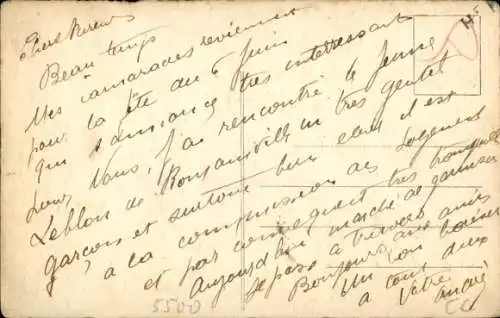 Chers Parents
Beau temps
Mes camarades reviennent
pour la fête du 6 Juin
qui s'annonce très intéressant
pour vous, j'ai rencontré le jeune
Leblon de un très gentil
garçon et surtout bien élevé il est
à la commission de logement
et par conséquent très tranquille
aujourd'hui marché de
je passe à travers
Bonjours aux amis
Un bon baiser
à tous deux
Votre
André
H5
5500
CC